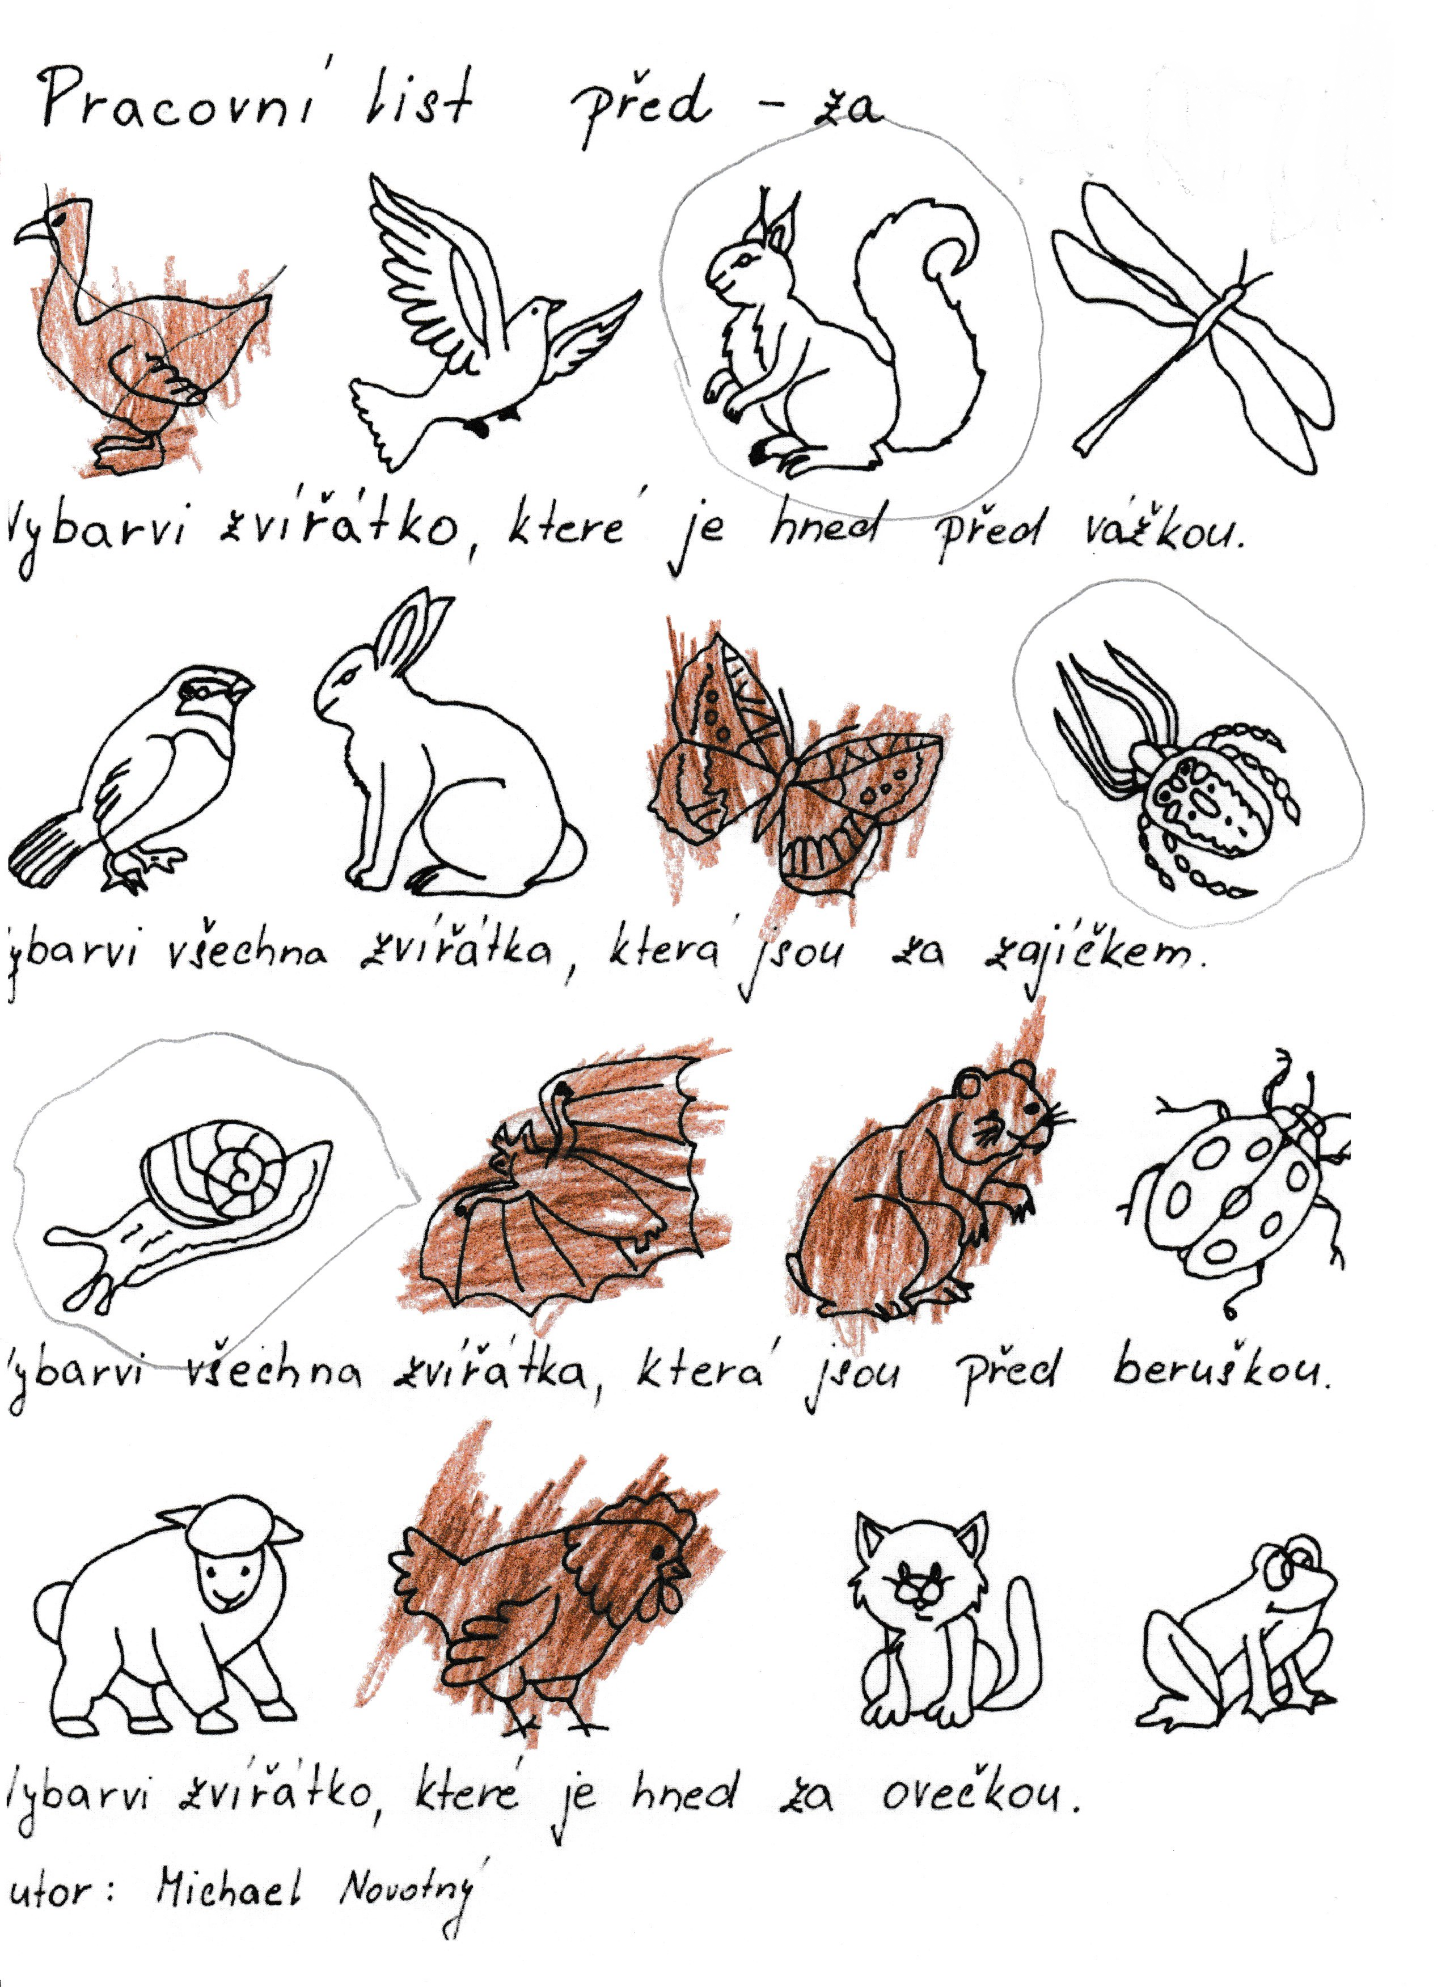 Pracovní list před - za
Vybarvi zvířátko, které je hned před vážkou.
ybarvi všechna zvířátka, která jsou za zajíčkem.
ybarvi všechna zvířátka, která jsou před beruškou.
Vybarvi zvířátko, které je hned za ovečkou.
utor: Michael Novotný